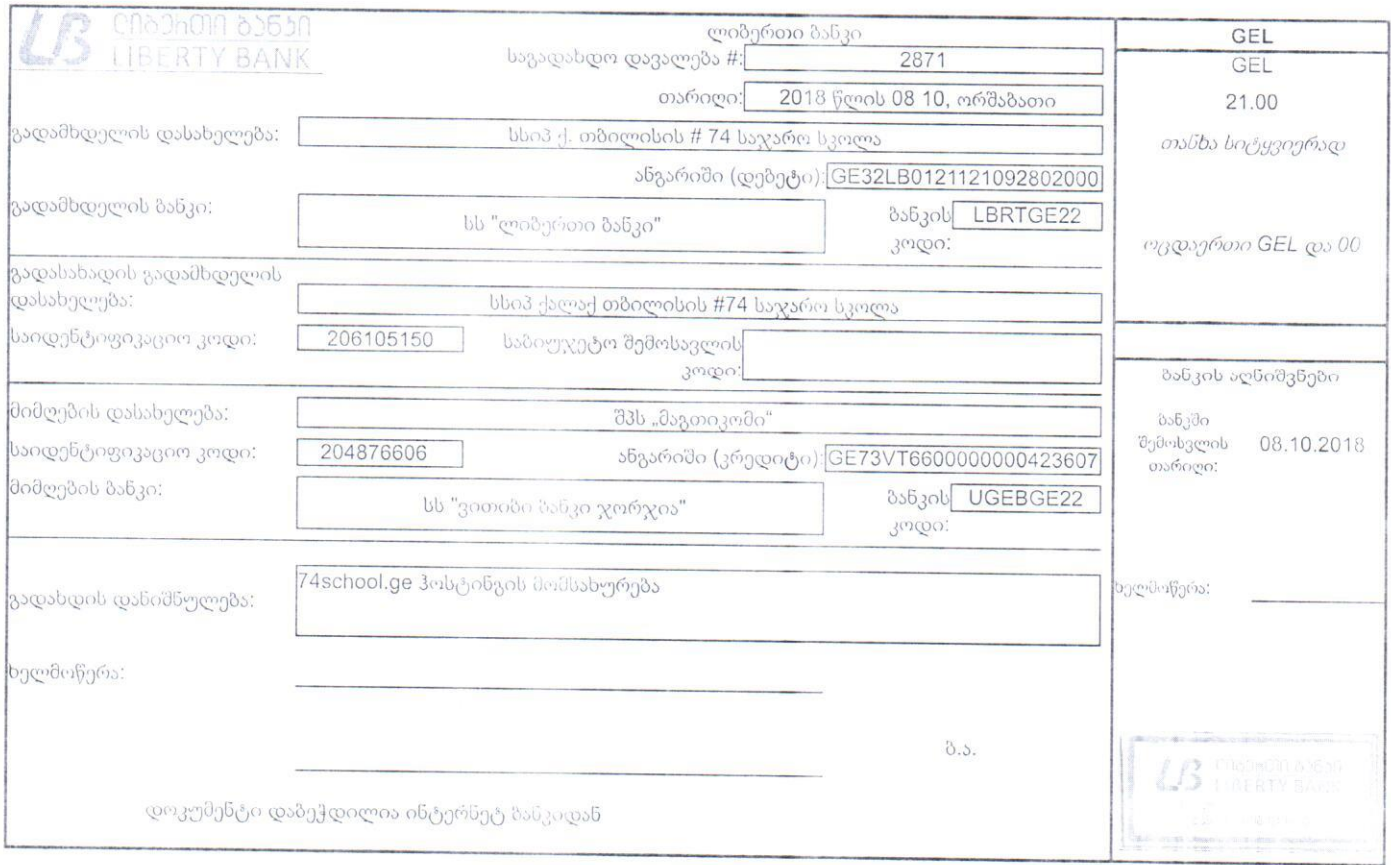 ლიბერთი ბანკი
LIBERTY BANK
ლიბერთი ბანკი
საგადახდო დავალება #: 2871
თარიღი: 2018 წლის 08 10, ორშაბათი
გადამხდელის დასახელება: სსიპ ქ. თბილისის # 74 საჯარო სკოლა
ანგარიში (დებეტი): GE32LB0121121092802000
გადამხდელის ბანკი: სს "ლიბერთი ბანკი" ბანკის კოდი: LBRTGE22
გადასახადის გადამხდელის
დასახელება: სსიპ ქალაქ თბილისის #74 საჯარო სკოლა
საიდენტიფიკაციო კოდი: 206105150 საბიუჯეტო შემოსავლის
კოდი:
მიმღების დასახელება: შპს „მაგთიკომი“
საიდენტიფიკაციო კოდი: 204876606 ანგარიში (კრედიტი): GE73VT6600000000423607
მიმღების ბანკი: სს "ვითიბი ბანკი ჯორჯია" ბანკის კოდი: UGEBGE22
გადახდის დანიშნულება: 74school.ge ჰოსტინგის მომსახურება
ხელმოწერა:
ბ.ა.
დოკუმენტი დაბეჭდილია ინტერნეტ ბანკიდან
GEL
GEL
21.00
თანხა სიტყვიერად
ოცდაერთი GEL და 00
ბანკის აღნიშვნები
ბანკში
შემოსვლის 08.10.2018
თარიღი:
ხელმოწერა:
ლიბერთი ბანკი
LIBERTY BANK